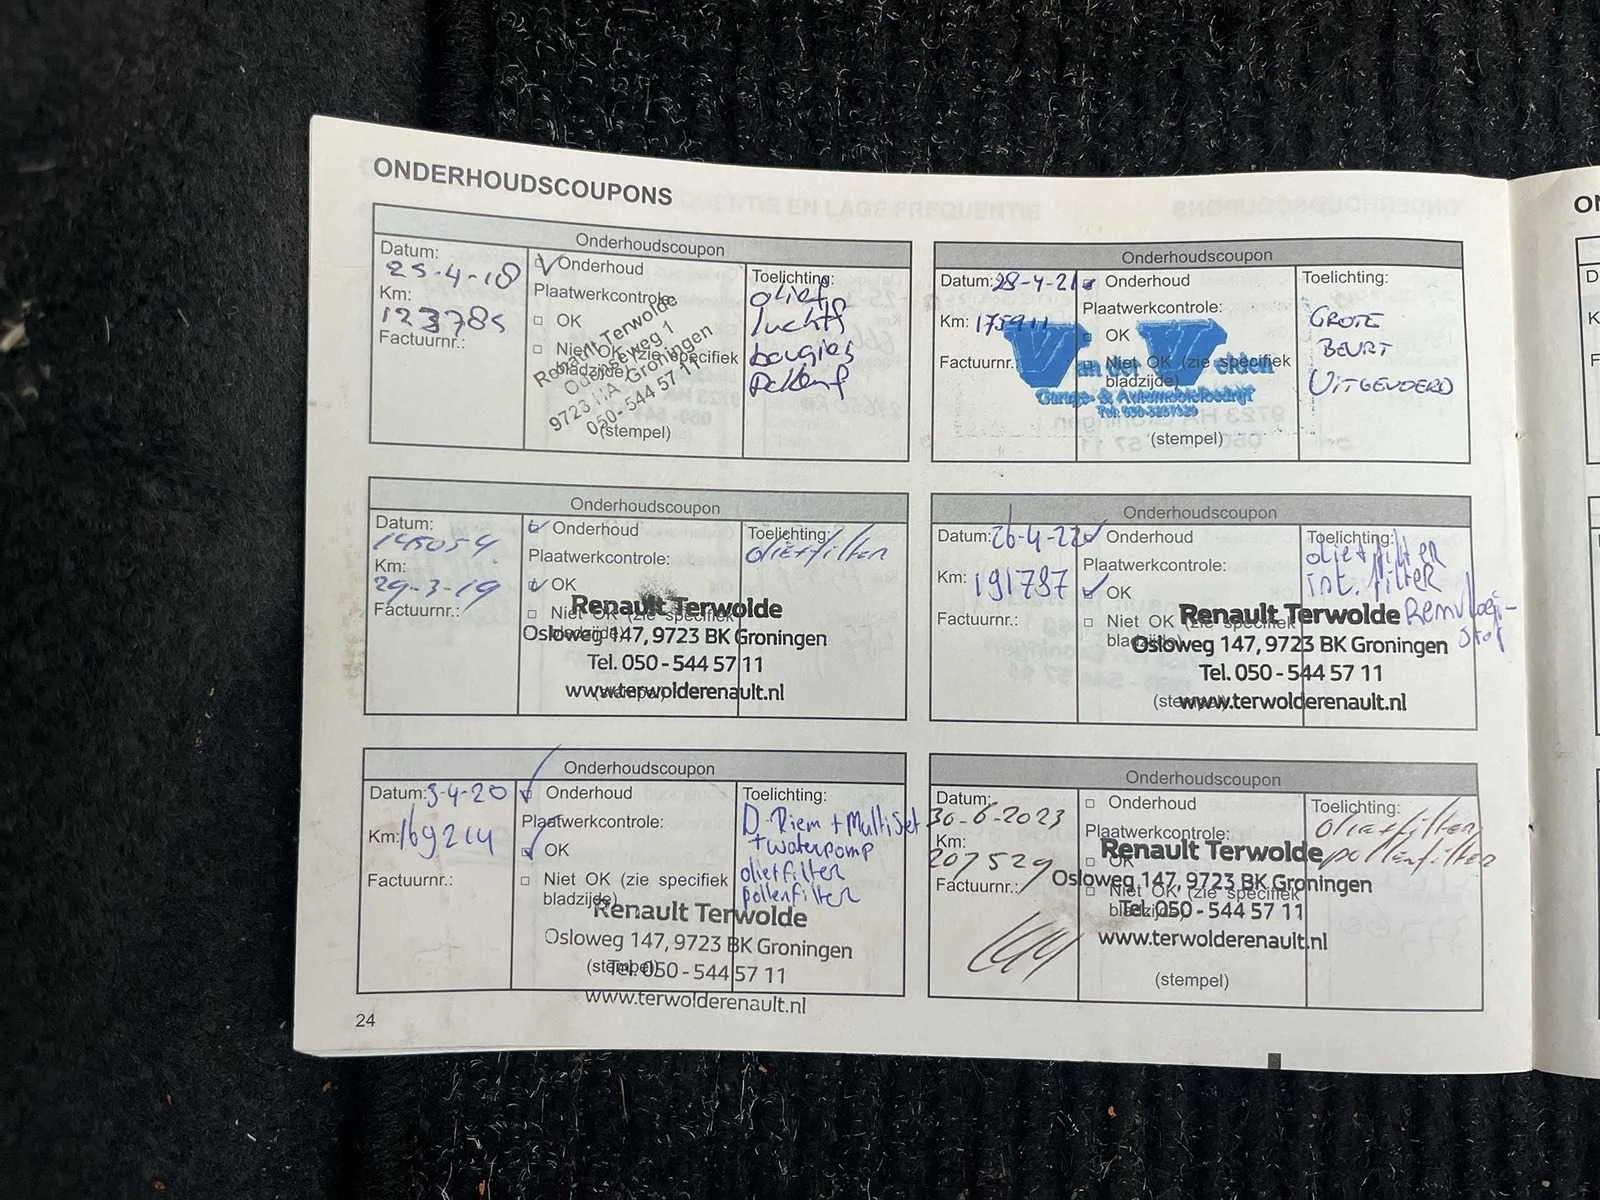 ONDERHOUDSCOUPONS
Onderhoudscoupon
Datum:
25-4-18
Km:
123785
Factuurnr.:
Onderhoud
Plaatwerkcontrole:
OK
Niet OK (zie specifiek
bladzijde)
Renault Terwolde
Osloweg 1
9723 HA Groningen
050-544 57 11
(stempel)
Toelichting:
olief
luchtf
bougies
pollenf
Onderhoudscoupon
Datum: 28-4-21
Km: 175911
Factuurnr.:
Onderhoud
Plaatwerkcontrole:
OK
Niet OK (zie specifiek
bladzijde)
Van der Velden
Garage- & Automobielbedrijf
(stempel)
Toelichting:
GROTE
BEURT
UITGEVOERD
Onderhoudscoupon
Datum:
145054
Km:
29-3-19
Factuurnr.:
Onderhoud
Plaatwerkcontrole:
OK
Niet OK (zie specifiek
bladzijde)
Renault Terwolde
Osloweg 147, 9723 BK Groningen
Tel. 050 - 544 57 11
www.terwolderenault.nl
(stempel)
Toelichting:
oliefilter
Onderhoudscoupon
Datum: 26-4-22
Km: 191787
Factuurnr.:
Onderhoud
Plaatwerkcontrole:
OK
Niet OK (zie specifiek
bladzijde)
Renault Terwolde
Osloweg 147, 9723 BK Groningen
Tel. 050 - 544 57 11
www.terwolderenault.nl
(stempel)
Toelichting:
oliefilter
int. filter
Remvloei-
stof
Onderhoudscoupon
Datum: 3-4-20
Km: 169214
Factuurnr.:
Onderhoud
Plaatwerkcontrole:
OK
Niet OK (zie specifiek
bladzijde)
Renault Terwolde
Osloweg 147, 9723 BK Groningen
Tel. 050 - 544 57 11
www.terwolderenault.nl
(stempel)
Toelichting:
D-Riem + Multiset
+ waterpomp
oliefilter
pollenfilter
Onderhoudscoupon
Datum:
30-6-2023
Km:
207529
Factuurnr.:
Onderhoud
Plaatwerkcontrole:
OK
Niet OK (zie specifiek
bladzijde)
Renault Terwolde
Osloweg 147, 9723 BK Groningen
Tel. 050 - 544 57 11
www.terwolderenault.nl
(stempel)
Toelichting:
oliefilter
pollenfilter
24